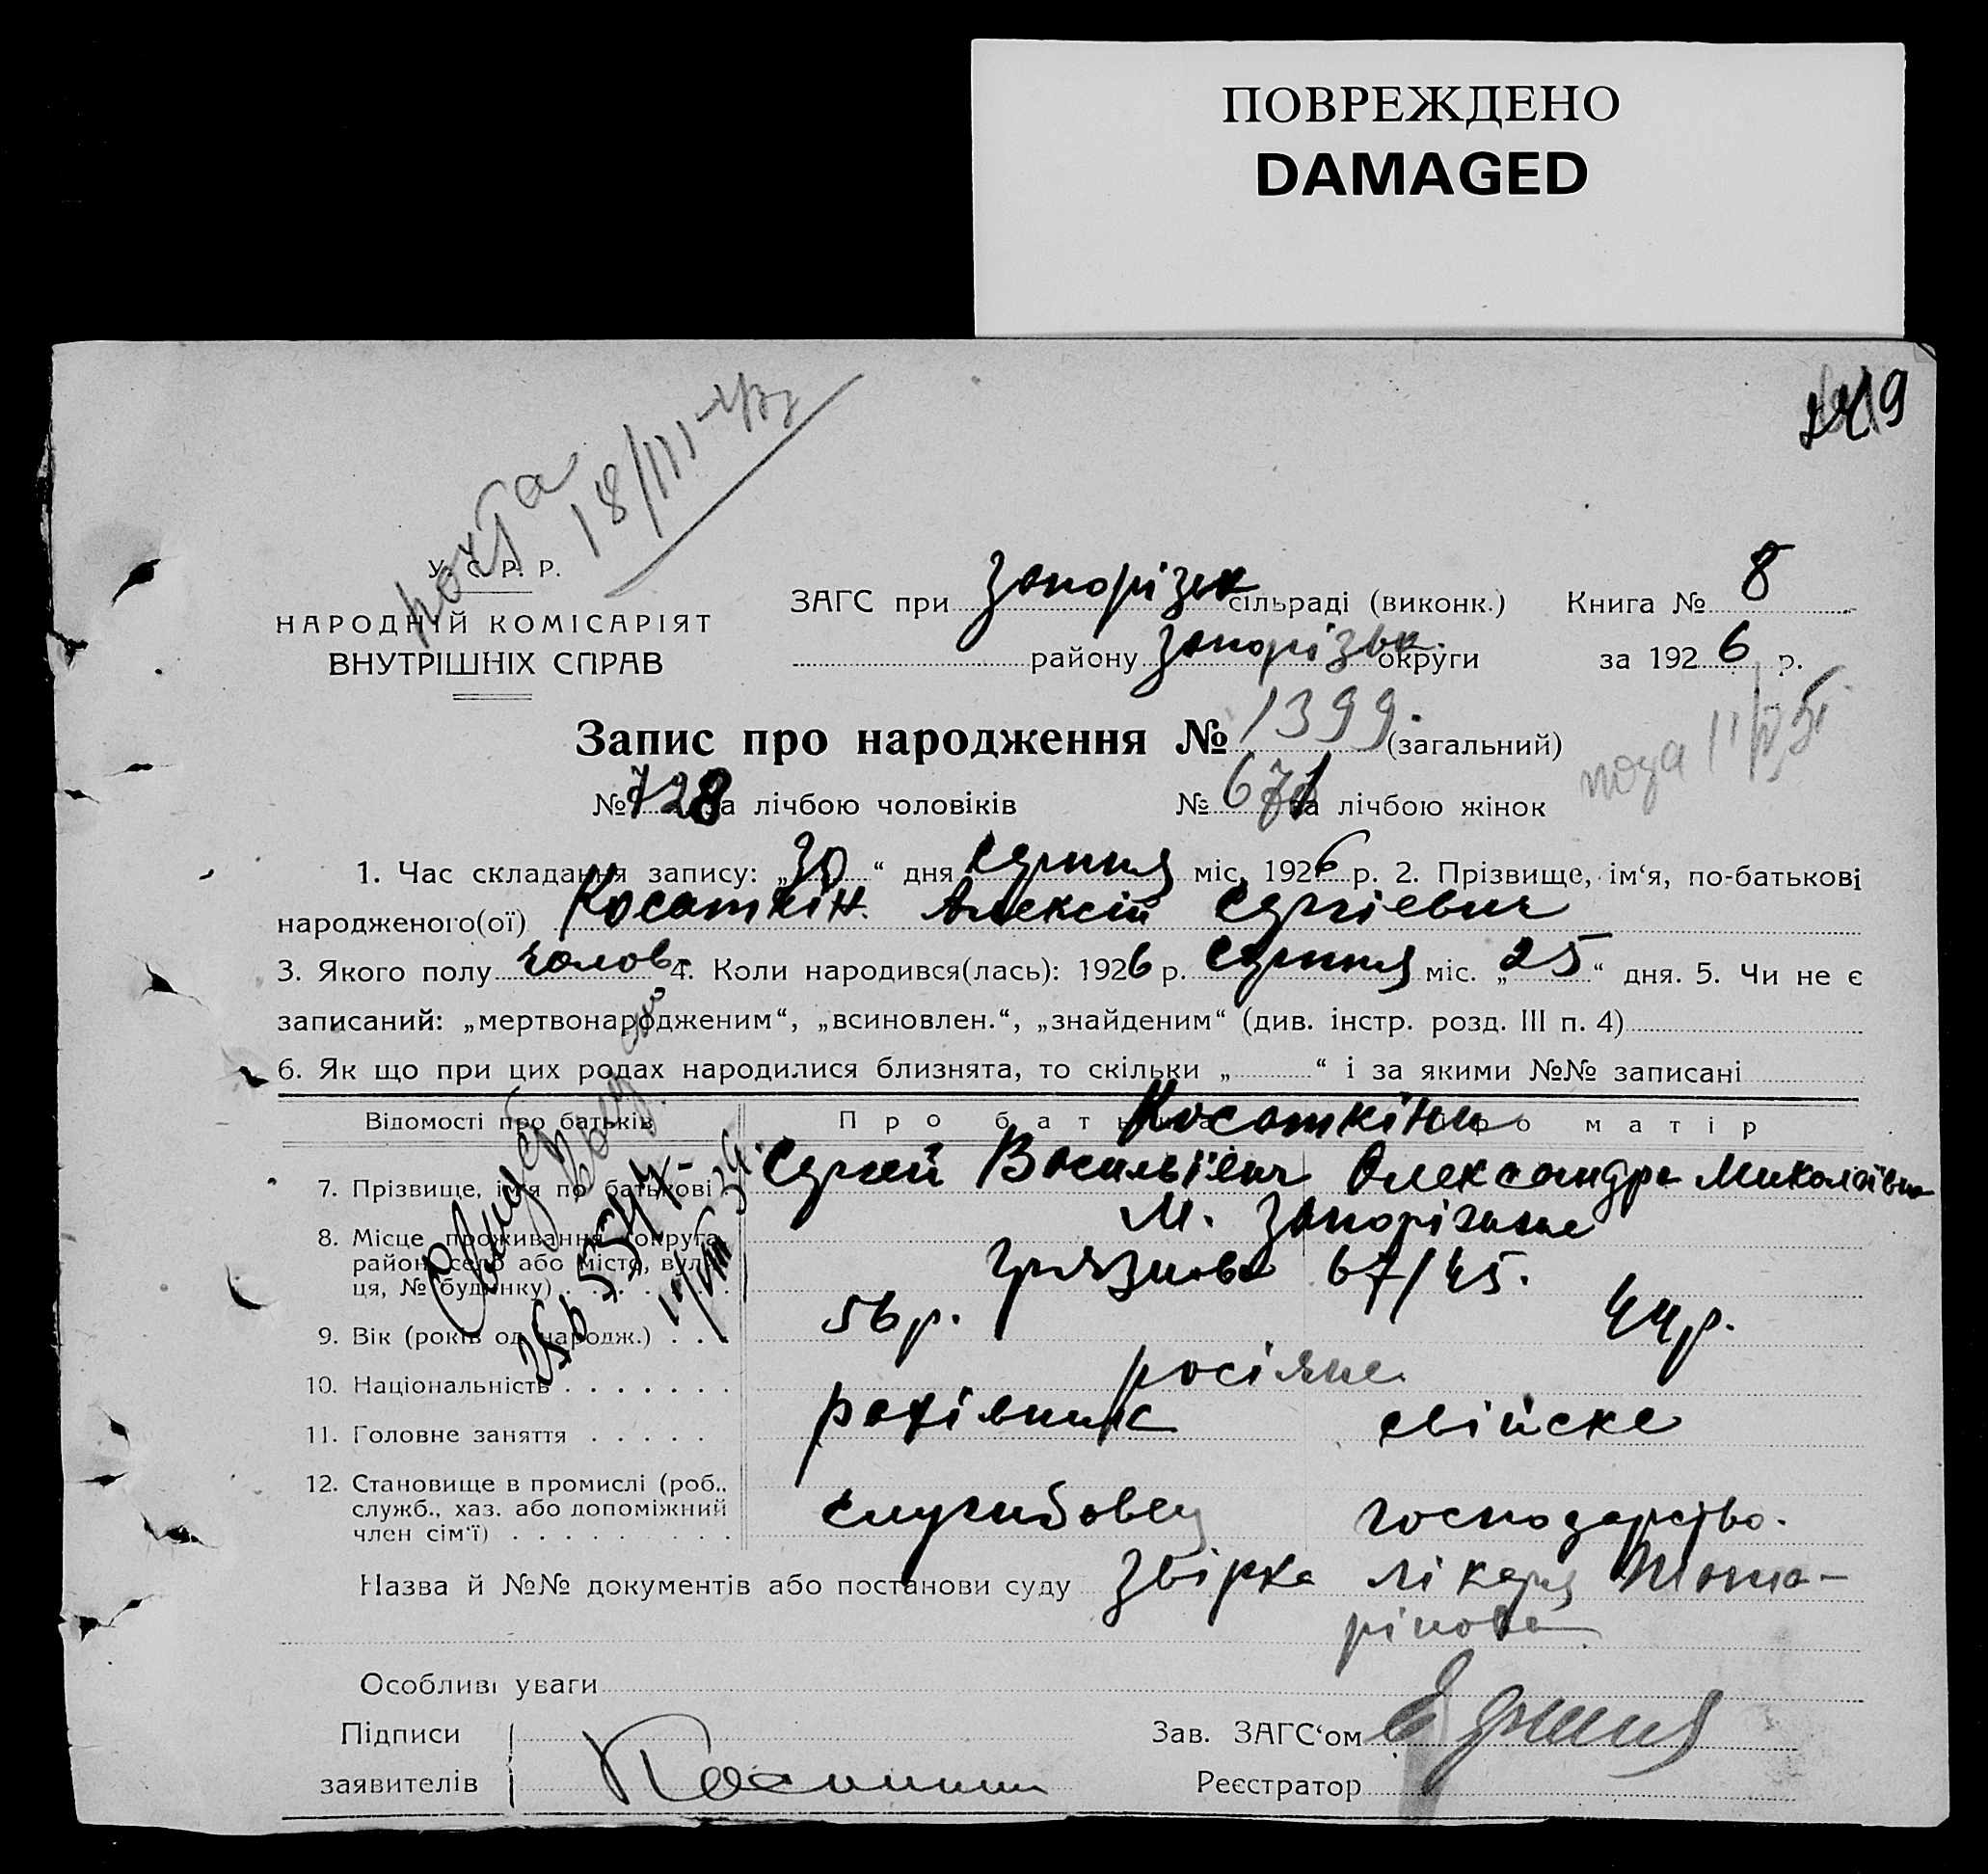 ПОВРЕЖДЕНО
DAMAGED
249
почта 18/III
У. С. Р. Р.
НАРОДНІЙ КОМІСАРІЯТ
ВНУТРІШНІХ СПРАВ
ЗАГС при Запорізьк сільраді (виконк.) Книга № 8
району Запорізьк. округи за 1926 р.
Запис про народження № 1399. (загальний)
№ 728 за лічбою чоловіків № 671 за лічбою жінок
1. Час складання запису: „30“ дня серпня міс, 1926 р. 2. Прізвище, ім‘я, по-батькові
народженого(ої) Косаткін. Алексій Сергієвич
3. Якого полу чолов. 4. Коли народився(лась): 1926 р. серпня міс. „25“ дня. 5. Чи не є
записаний: „мертвонародженим“, „всиновлен.“, „знайденим“ (див. інстр. розд. III п. 4)
6. Як що при цих родах народилися близнята, то скільки „ “ і за якими №№ записані
Відомості про батьків Про батька Про матір
Косаткіни
7. Прізвище, ім‘я по батькові Сергій Васильієвич Олександра Миколаївна
8. Місце проживання (округа, м. Запоріжже
район, село або місто, вули- Грязнова 67/45.
ця, № будинку)
9. Вік (років од народж.) 56 р. 44 р.
10. Національність росіяне
11. Головне заняття робівник свійске
12. Становище в промислі (роб.,
служб., хаз. або допоміжний службовец господарство.
член сім‘ї)
Назва й №№ документів або постанови суду Звірка лікаря
Особливі уваги
Підписи Зав. ЗАГС‘ом
заявителів Реєстратор